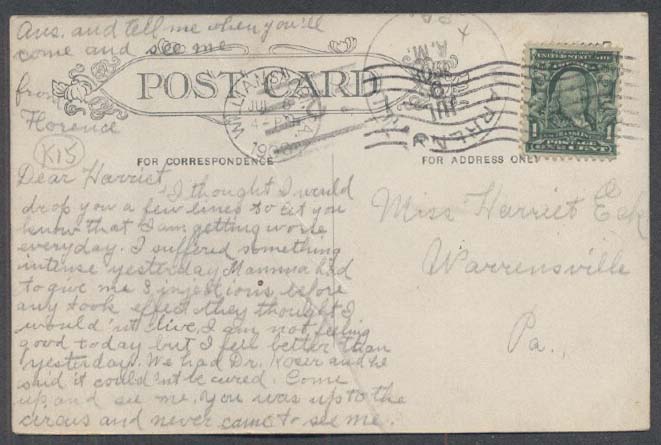 Ans. and tell me when you'll
come and see me
from
Florence
K15
POST CARD
WILLIAMSPORT, PA.
JUL
1908
A.M.
JUL
UNITED STATES
1
POSTAGE
FOR CORRESPONDENCE
FOR ADDRESS ONLY
Dear Harriet
I thought I would
drop you a few lines to let you
know that I am getting worse
everyday. I suffered something
intense yesterday Mamma had
to give me 3 injections before
any took effect they thought I
would'nt live, I am not feeling
good today but I feel better than
yesterday. We had Dr. Koser and he
said it could'nt be cured. Come
up and see me, you was up to the
circus and never came to see me.
Miss Harriet
Warrensville
Pa.,